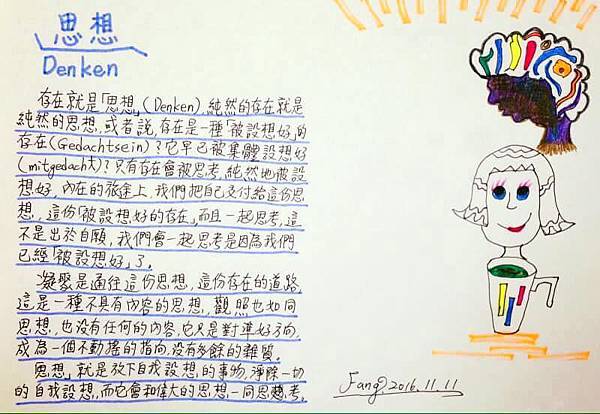 思想
Denken
存在就是「思想」(Denken),純然的存在就是
純然的思想,或者說,存在是一種「被設想好」的
存在(Gedachtsein)?它早已被集體設想好
(mitgedacht)?只有存在會被思考,純然地被設
想好,內在的旅途上,我們把自己交付給這份思
想,這份「被設想好的存在」,而且一起思考,這
不是出於自願,我們會一起思考是因為我們
已經「被設想好」了。
凝聚是通往這份思想,這份存在的道路,
這是一種不具有內容的思想,觀照也如同
思想,也沒有任何的內容,它只是對準好方向,
成為一個不動搖的指向,沒有多餘的雜質。
思想,就是放下自我設想的事物,淨除一切
的自我設想,而它會和偉大的思想一同思考。
Fang, 2016.11.11